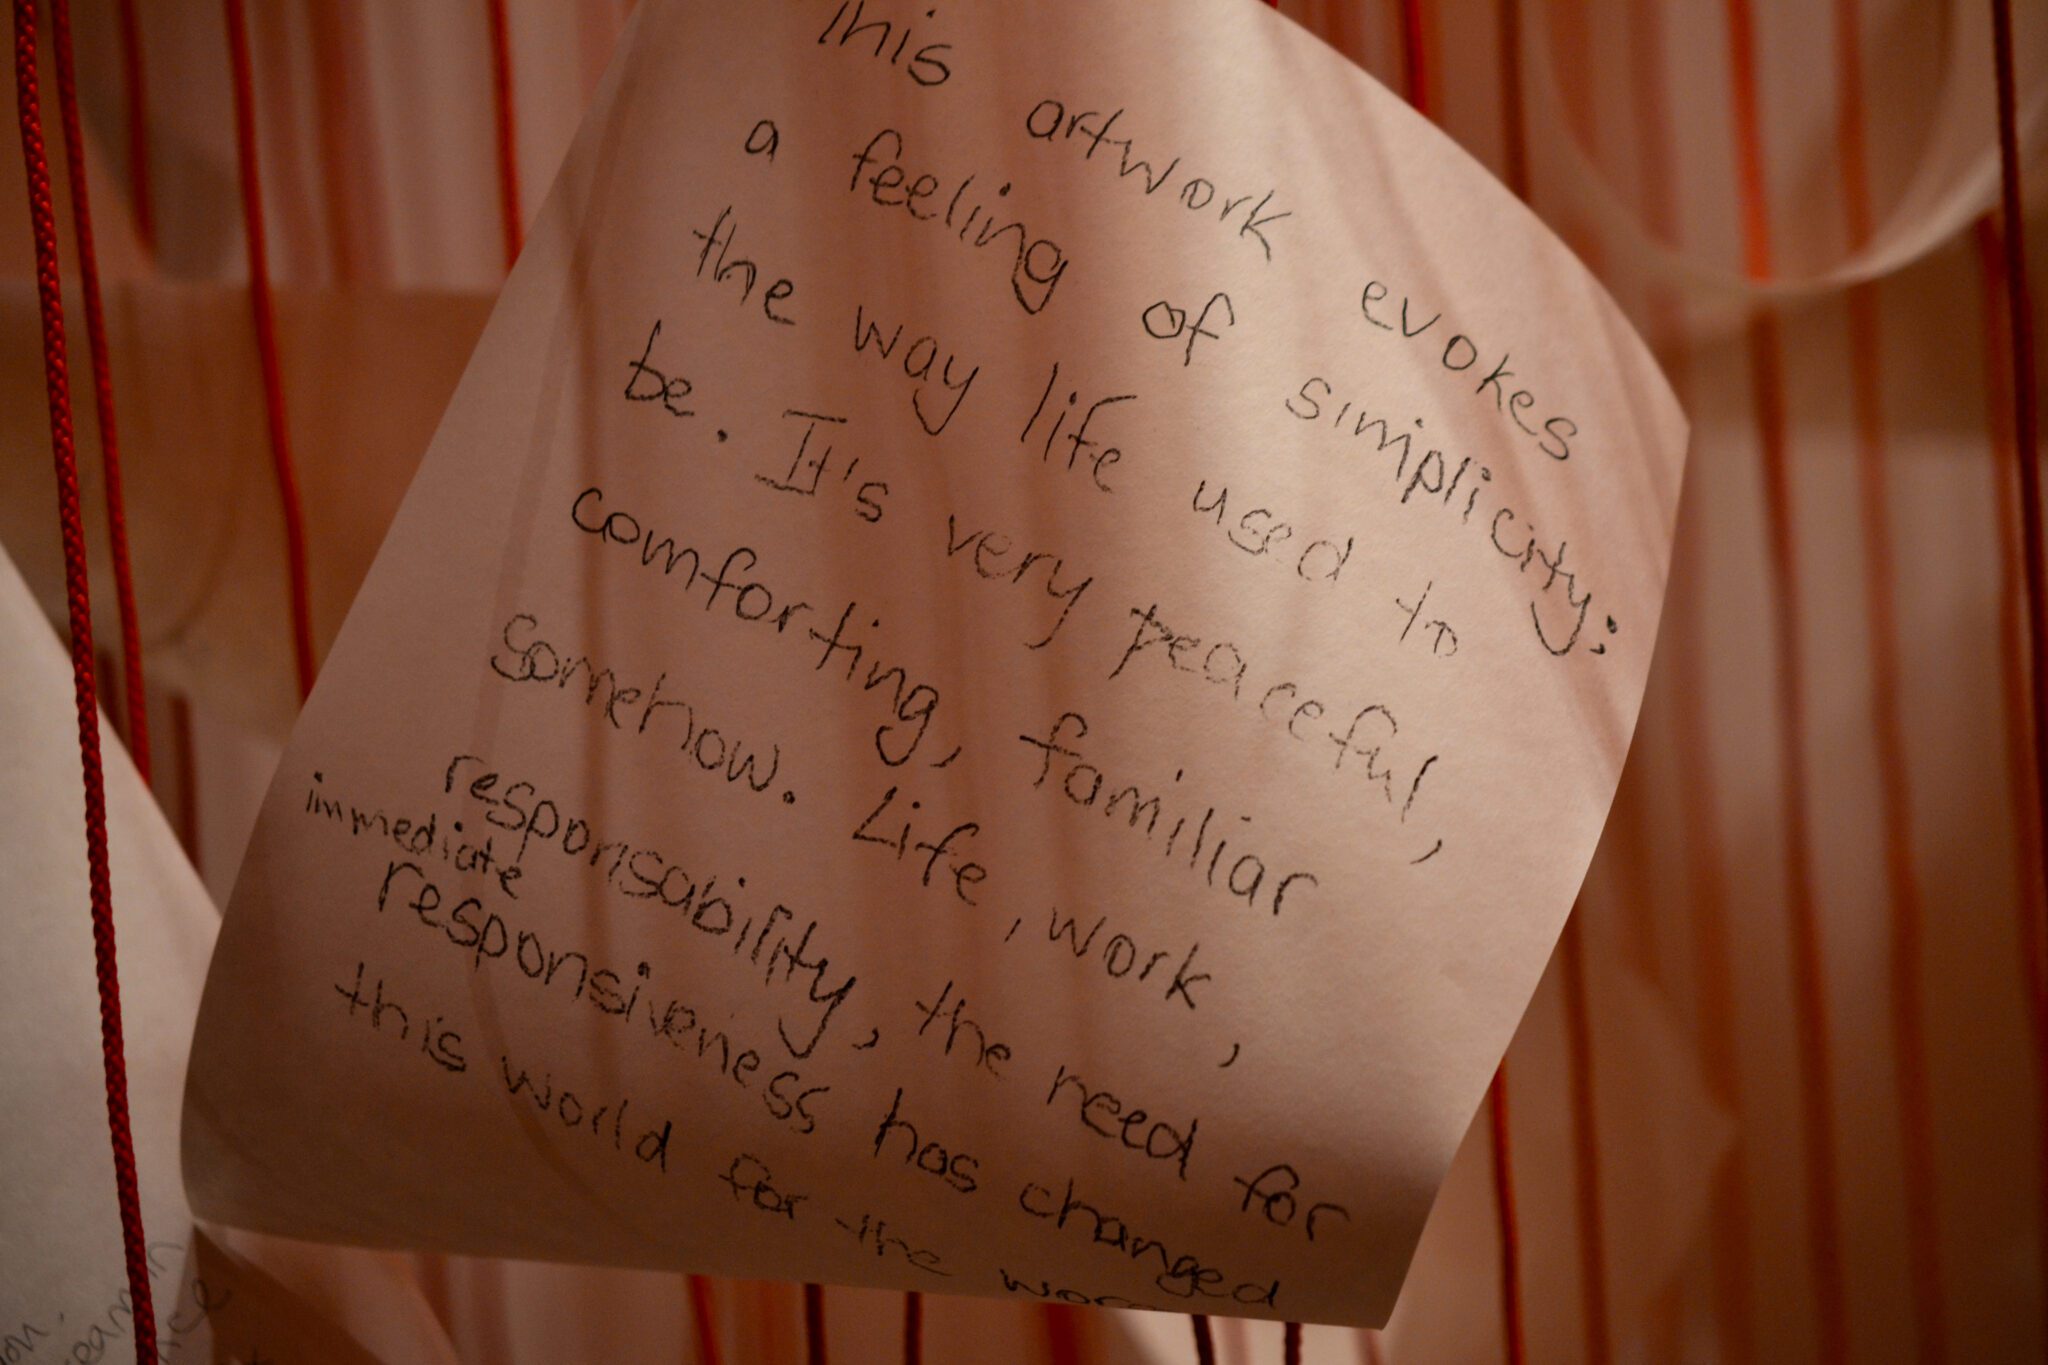 This artwork evokes
a feeling of simplicity;
the way life used to
be. It's very peaceful,
comforting, familiar
somehow. Life, work,
responsability, the need for
immediate
responsiveness has changed
this world for the